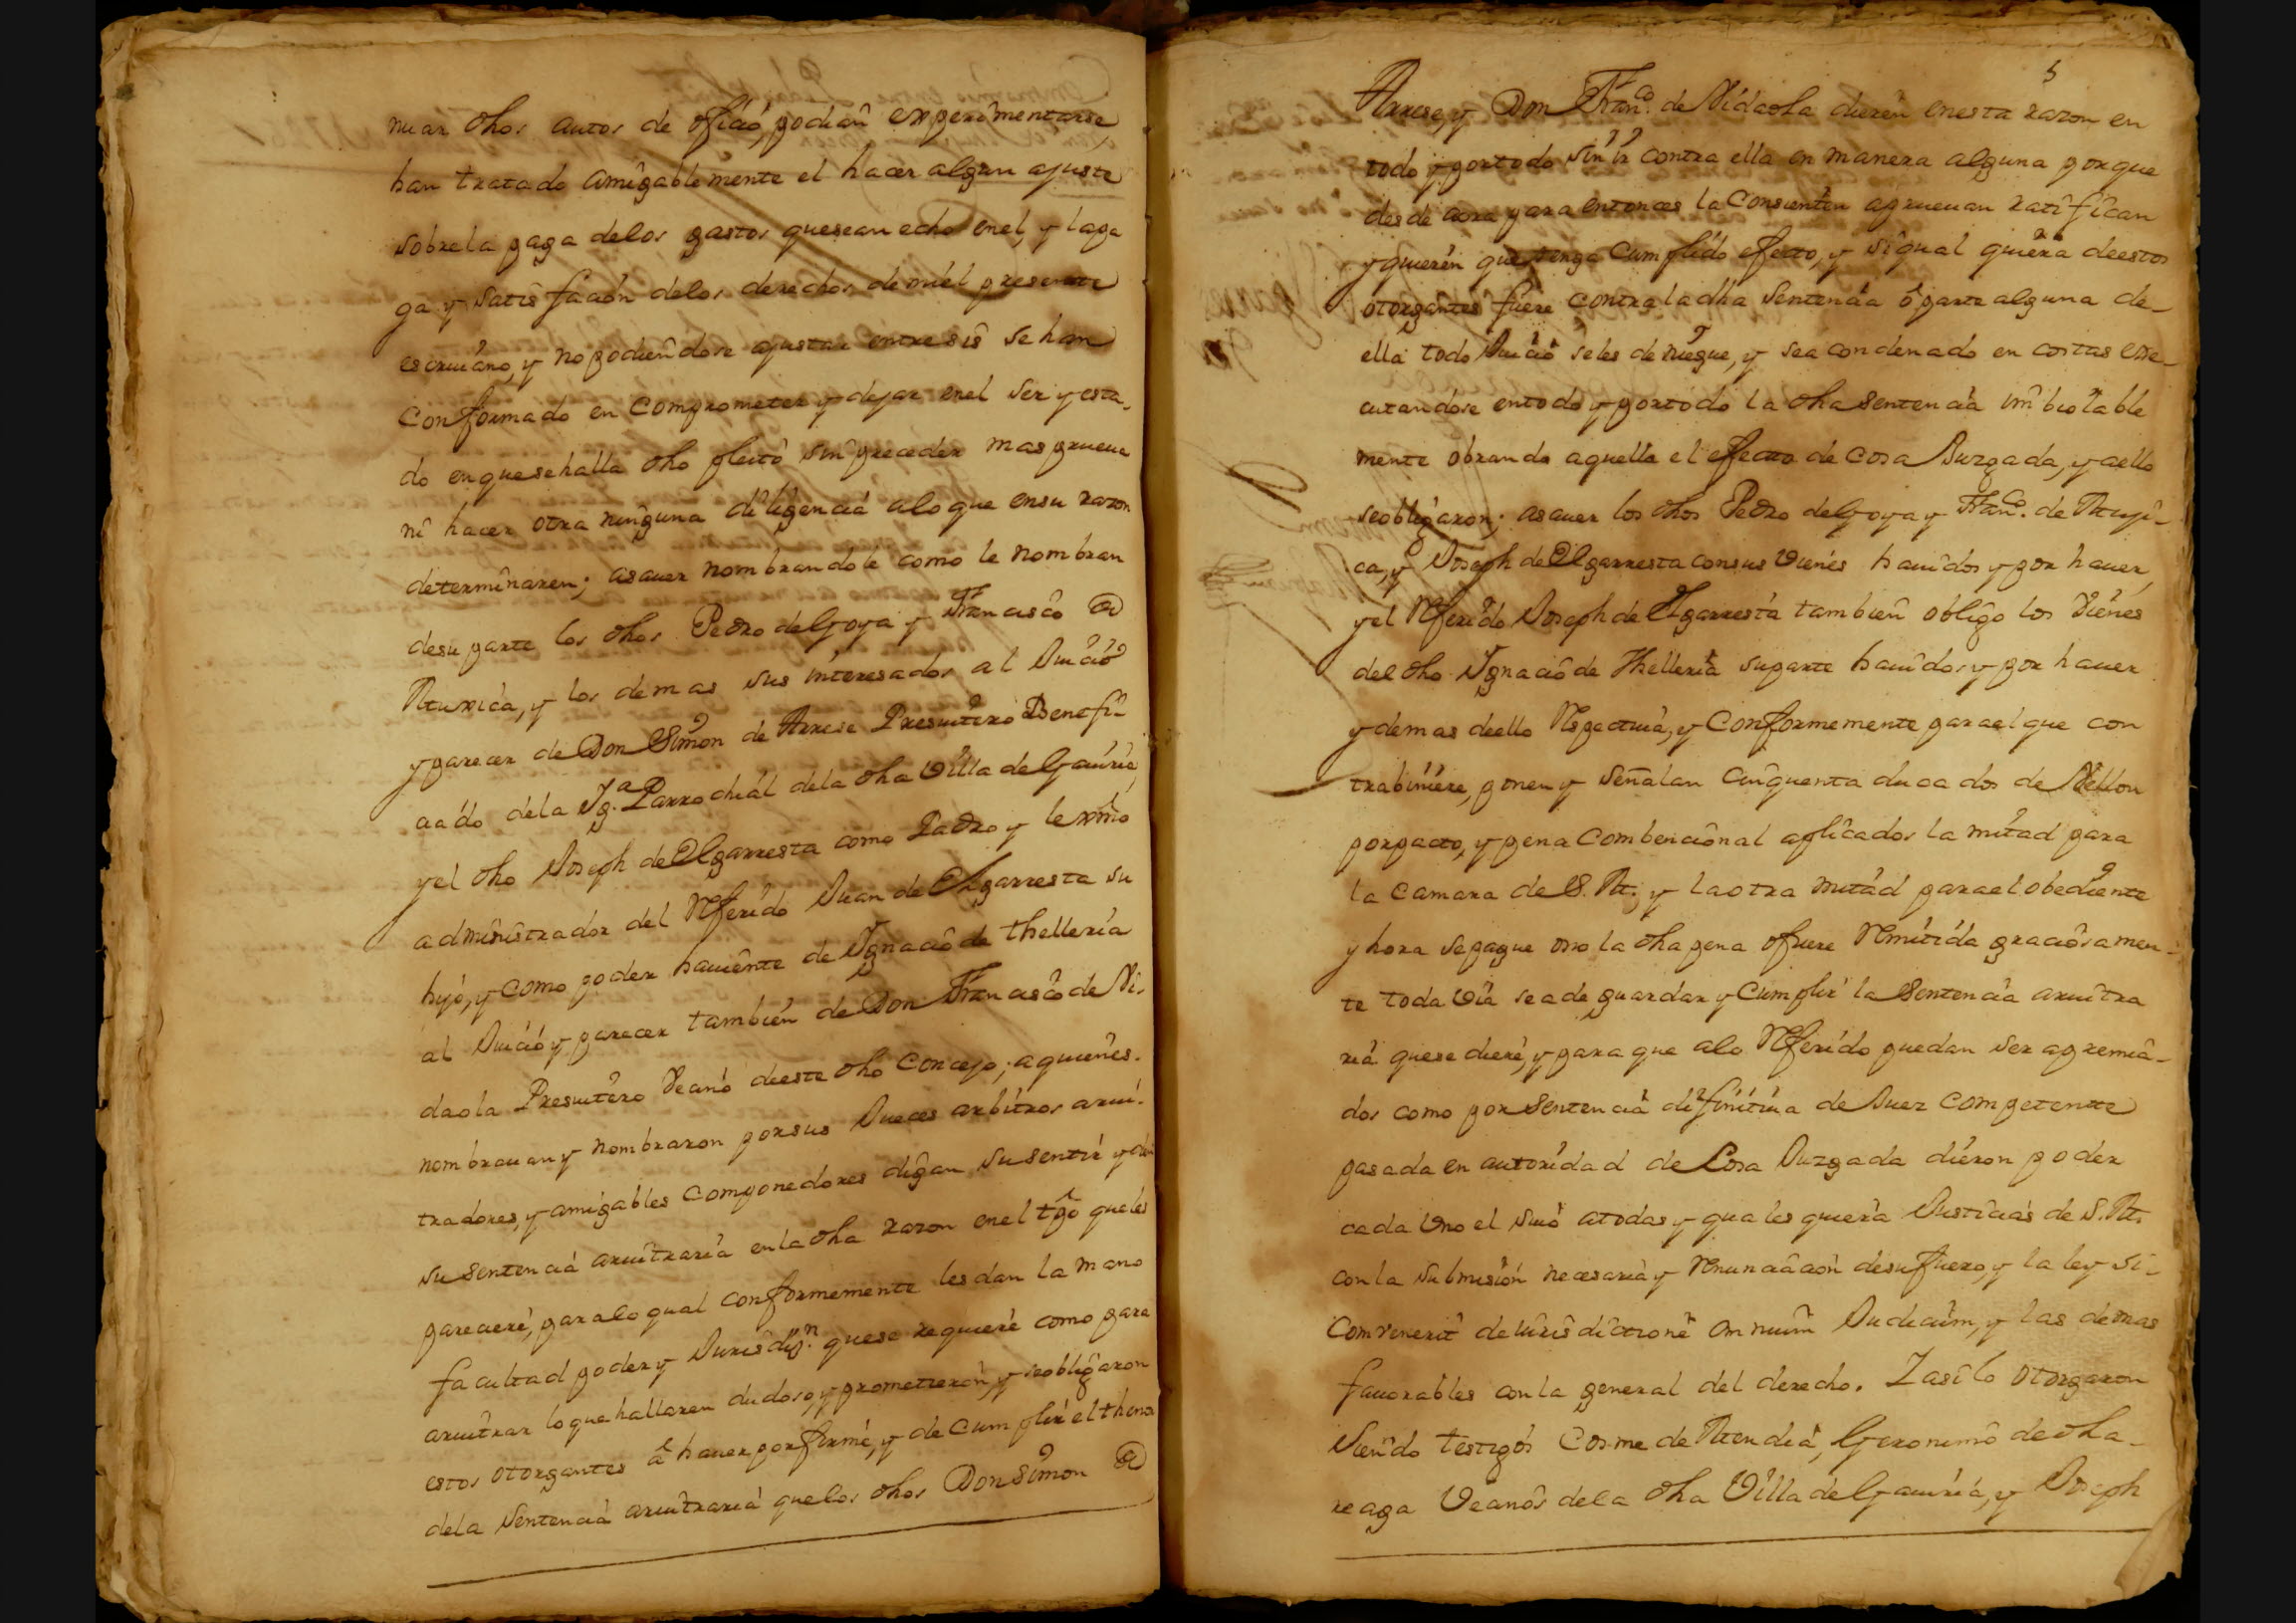 nuar dhos autos de ofiçio, podian experimentarse
han tratado amigablemente el hacer algun ajuste
sobrela paga delos gastos quesean echo enel, y lapa
ga y satisfaçion delos derechos demiel presente
escriuano, y nopodiendose ajustar entre sis se han
conformado en comprometer y dejar enel ser y esta-
do enquesehalla dho pleito sin preceder mas prueua
ni hacer otra ninguna diligencia alo que ensu razon
determinaren; asauer nombrandole como le nombran
desu parte los dhos Pedro de Goya y Francisco @
Atuxica, y los demas sus interesados al Juicio
y parecer de Don Simon de Arrese Presuitero Benefi-
ciado dela Jg.ª Parrochial dela dha Villa de Gauiria,
yel dho Joseph de Olgarresta como Padro y lexmo
administrador del Referido Juan de Olgarresta su
hijo, y como poder hauiente de Ignacio de Thelleria
al Juicio y parecer tambien de Don Francisco de Vi-
daola Presuitero Veçino deeste dho Concejo; aquienes
nombrauan y nombraron porsus Jueces arbitros arui-
tradores, y amigables componedores digan susentir y
su sentencia aruitraria enla dha razon enel tpo queles
pareciere, paralo qual conformemente les dan la mano
facultad poder y Jurisdiz.n quese requiere como para
aruitrar loque hallaren dudoso, y prometieron, y seobligaron
estos otorgantes â hauer porfirme, y de cumplir el thenor
dela Sentencia aruitraria quelos dhos Don Simon @
5
Arrese, y Don Fran.co de Vidaola dieren enesta razon en
todo y portodo sin ir contra ella en manera alguna porque
desde aora para entonces la consienten aprueuan ratifican
y quieren que tenga cumplido efecto, y siqual quiera deestos
otorgantes fuere contraladha Sentencia ô parte alguna de-
ella todo Juicio seles deniegue, y sea condenado en costas exe-
cutandose entodo y portodo la dha Sentencia imbiolable
mente obrando aquella el efecto de cosa Juzgada, y aello
seobligaron; asauer los dhos Pedro de Goya y Fran.co de Atuji-
ca, y Joseph de Olgarresta consus vienes hauidos y por hauer,
yel Referido Joseph de Olgarresta tambien obligo los Vienes
del dho Ignacio de Thelleria suparte hauidos y por hauer
y demas deello Respectiua, y conformemente parael que con
trabiniere, ponen y señalan cinquenta ducados de Vellon
porpacto, y pena combencional aplicados la mitad para
la camara de S. M. y laotra mitad parael obediente
y hora sepague ono la dha pena ofuere Remitida graciosamen-
te toda via seade guardar y cumplir la Sentencia aruitra
ria quese diere, y para que alo Referido puedan ser apremia-
dos como por Sentencia difinitiua de Juez competente
pasada en autoridad de Cosa Juzgada dieron poder
cada Uno el suio atodas y quales quiera Justicias de S. M.
con la submision necesaria y Renunciacion desufuero, y la ley si-
convenerit de iurisdictione omnium Judicum, y las demas
fauorables con la general del derecho. Y asilo otorgaron
Siendo testigos Cosme de Atendia, Geronimo de Ola-
reaga Veçinos dela dha Villa de Gauiria, y Joseph